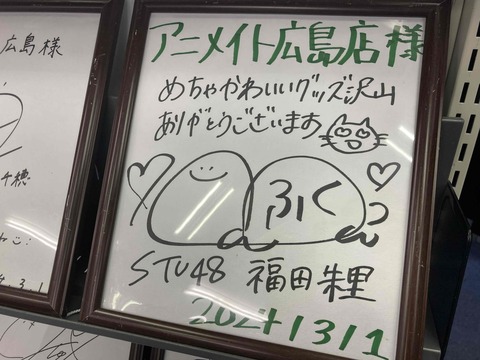 アニメイト広島店様
めちゃかわいいグッズ沢山
ありがとうございます
ふく
STU48 福田朱里
2024/3/1
広島様
千穂
3.1